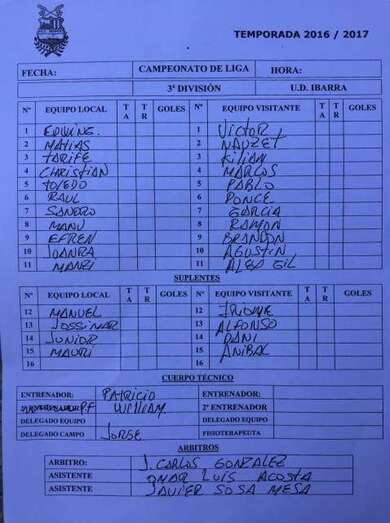 TEMPORADA 2016 / 2017
FECHA: CAMPEONATO DE LIGA HORA:
3ª DIVISIÓN U.D. IBARRA
Nº EQUIPO LOCAL T A T R GOLES Nº EQUIPO VISITANTE T A T R GOLES
1 EDWING. 1 VICTOR
2 MATIAS 2 NAUZET
3 TARIFE 3 KILIAN
4 CHRISTIAN 4 MARCOS
5 TOLEDO 5 PABLO
6 RAUL 6 PONCE
7 SANDRO 7 GARCIA
8 MANU 8 RAMON
9 EFREN 9 BRANDON
10 JOANRA 10 AGUSTIN
11 11 ALEX GIL
SUPLENTES
Nº EQUIPO LOCAL T A T R GOLES Nº EQUIPO VISITANTE T A T R GOLES
12 MANUEL 12
13 JOSSIMAR 13 ALFONSO
14 JUNIOR 14 DANI
15 MAURI 15 ANIBAL
16 16
CUERPO TÉCNICO
ENTRENADOR: PATRICIO ENTRENADOR:
PF WILLIAM 2º ENTRENADOR
DELEGADO EQUIPO DELEGADO EQUIPO
DELEGADO CAMPO JORGE FISIOTERAPEUTA
ARBITROS
ARBITRO: J. CARLOS GONZALEZ
ASISTENTE OMAR LUIS ACOSTA
ASISTENTE JAVIER SOSA MESA